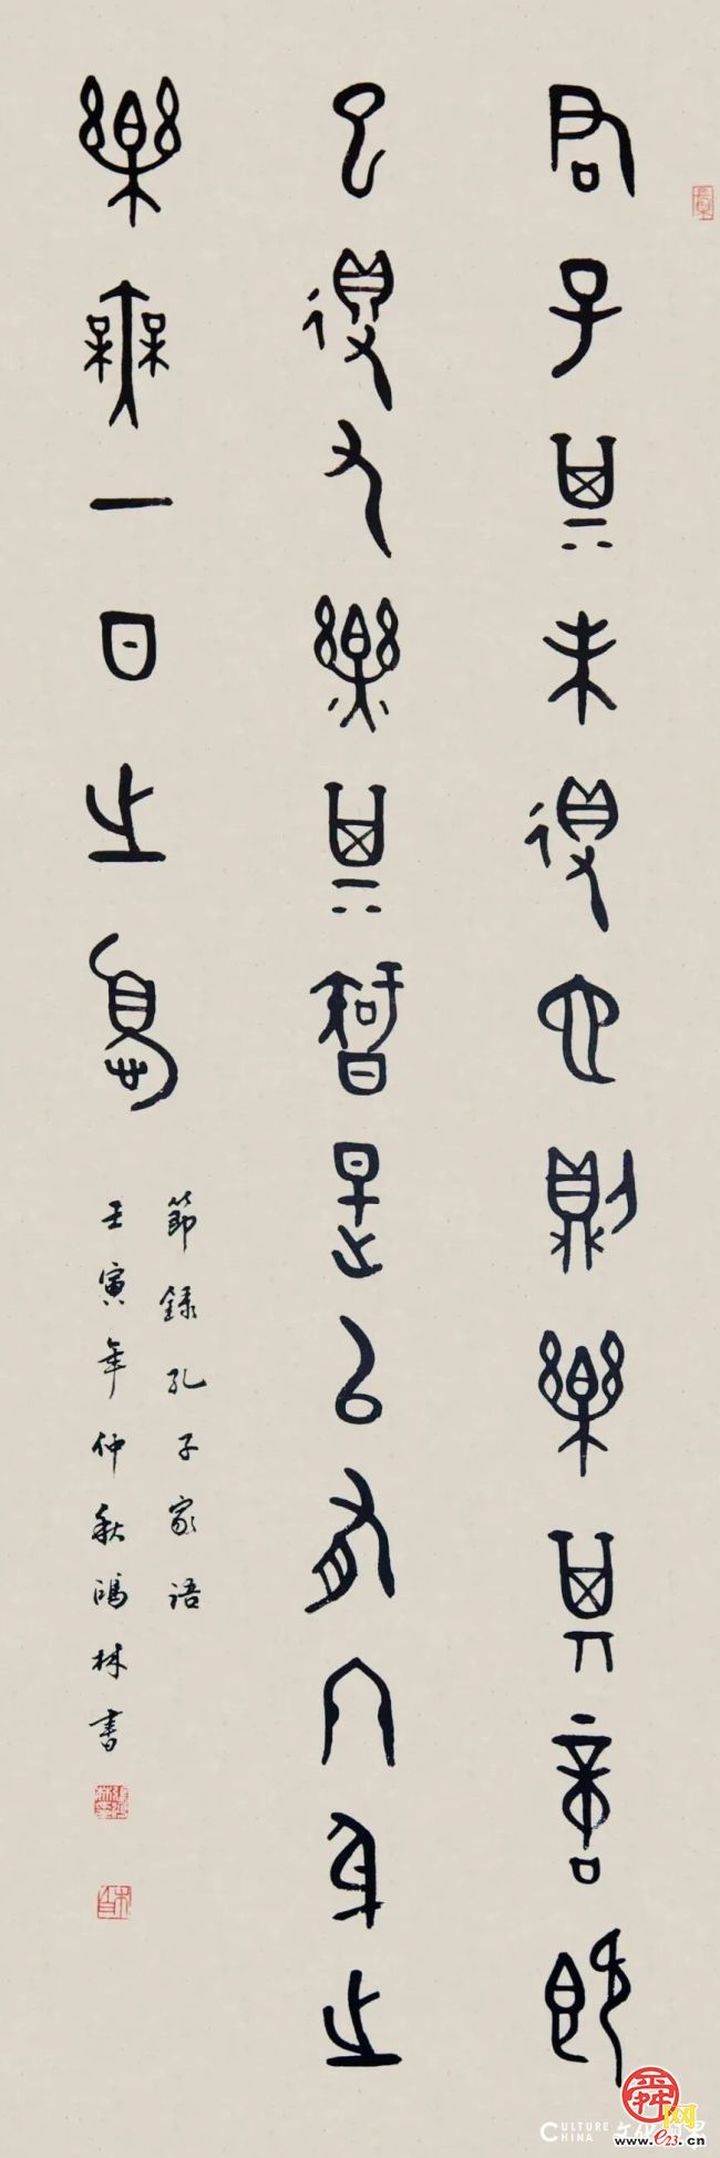 君子其未得也則樂其意既
已得又樂其智是以有終身之
樂無一日之憂
節録孔子家語
壬寅年仲秋鴻林書
CULTURE CHINA
舜网
www.e23.cn